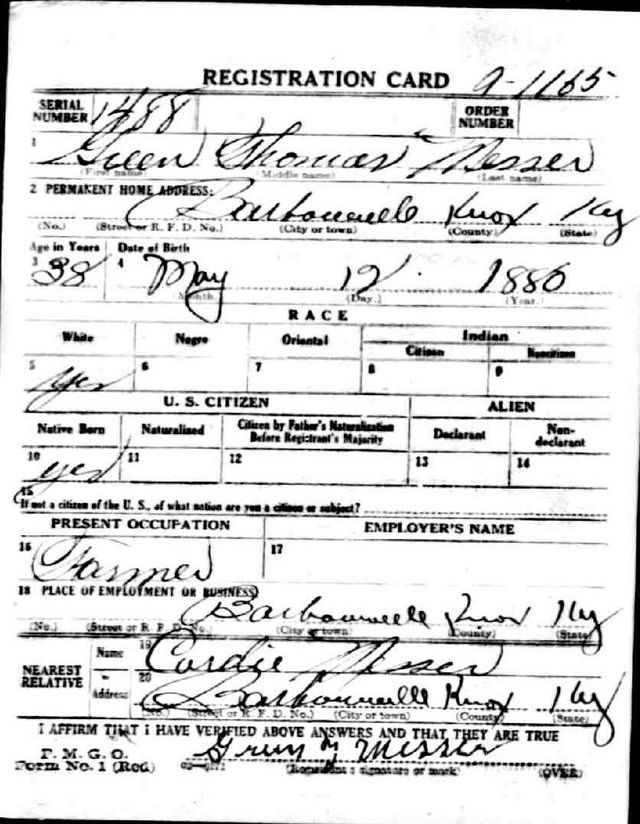 REGISTRATION CARD 9-1155
SERIAL NUMBER 1488 ORDER NUMBER
1 Green Thomas Messer
(First name) (Middle name) (Last name)
2 PERMANENT HOME ADDRESS:
Barbourville Knox Ky
(No.) (Street or R. F. D. No.) (City or town) (County) (State)
Age in Years Date of Birth
3 38 4 May 12 1880
(Month.) (Day.) (Year.)
RACE
White Negro Oriental Indian
Citizen Noncitizen
5 yes 6 7 8 9
U. S. CITIZEN ALIEN
Native Born Naturalized Citizen by Father's Naturalization Before Registrant's Majority Declarant Non-declarant
10 yes 11 12 13 14
15
If not a citizen of the U. S., of what nation are you a citizen or subject?
PRESENT OCCUPATION EMPLOYER'S NAME
16 Farmer 17
18 PLACE OF EMPLOYMENT OR BUSINESS
Barbourville Knox Ky
(No.) (Street or R. F. D. No.) (City or town) (County) (State)
NEAREST RELATIVE Name 19 Cordie Messer
Address 20 Barbourville Knox Ky
(No.) (Street or R. F. D. No.) (City or town) (County) (State)
I AFFIRM THAT I HAVE VERIFIED ABOVE ANSWERS AND THAT THEY ARE TRUE
P. M. G. O.
Form No. 1 (Red) Messer
(Registrant's signature or mark) (OVER)